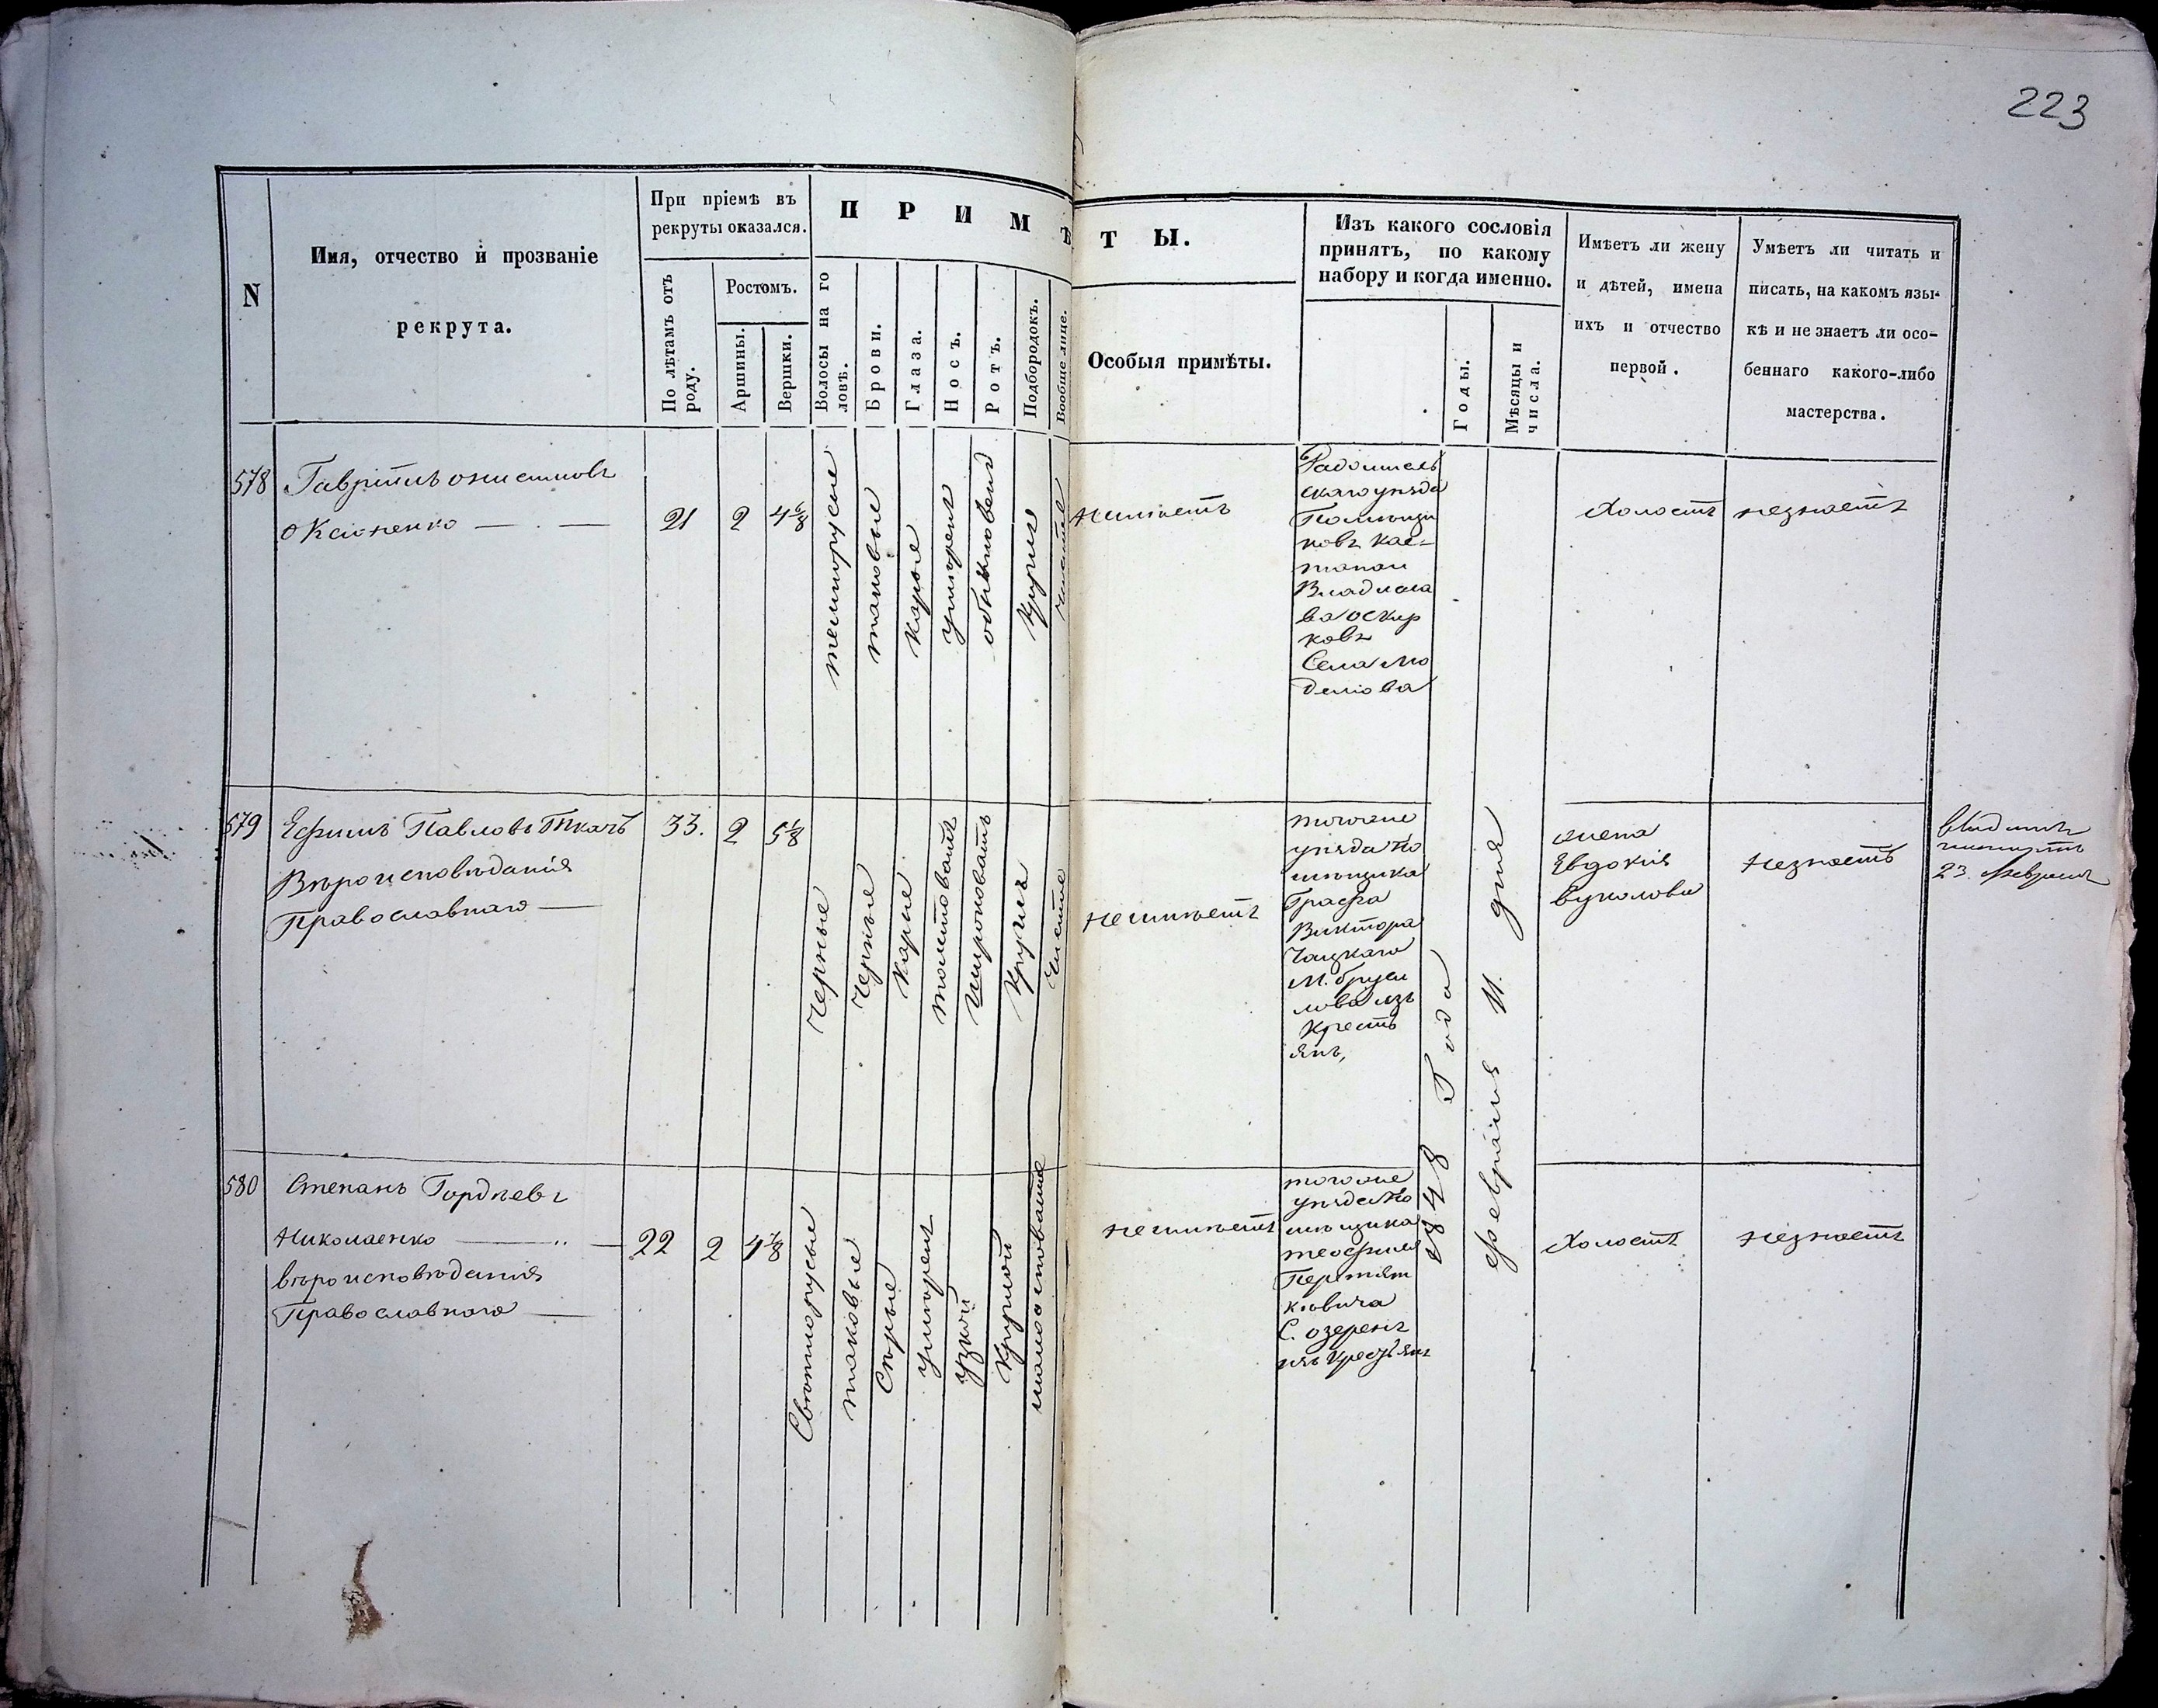 223
N
Имя, отчество и прозваніе
рекрута.
При пріемѣ въ
рекруты оказался.
По лѣтамъ отъ
роду.
Ростомъ.
Аршины.
Вершки.
П Р И М Ѣ Т Ы.
Волосы на го
ловѣ.
Брови.
Глаза.
Носъ.
Ротъ.
Подбородокъ.
Вообще лице.
Особыя примѣты.
Изъ какого сословія
принятъ, по какому
набору и когда именно.
Годы.
Мѣсяцы и
числа.
Имѣетъ ли жену
и дѣтей, имена
ихъ и отчество
первой.
Умѣетъ ли читать и
писать, на какомъ язы-
кѣ и не знаетъ ли осо-
беннаго какого-либо
мастерства.
578
Гаврiилъ
21
2
темнорусые
таковые
карые
умѣренъ
обыкновенъ
кругилъ
неимѣетъ
уѣзда
Помѣщи
ковъ
Села
холостъ
незнаетъ
579
Ефимъ Павловъ Ткачъ
Вѣроисповѣданія
Православнаго
33.
2
5⅛
черные
черные
карые
толстоватъ
широковатъ
чистое
неимѣетъ
тогоже
уѣзда по
мѣщика
Графа
Виктора
Чацкаго
М. Бруси
лова изъ
кресть
янъ,
1848 Года
февраля 11. дня
жена
Евдокія
незнаетъ
23. февраля
580
Степанъ Гордѣевъ
Николаенко
вѣроисповѣданія
Православнаго
22
2
4⅞
Свѣтлорусые
таковые
сѣрые
умѣренъ
узкой
круглой
неимѣетъ
тогоже
уѣзда по
мѣщика
теофила
С. озеренъ
холостъ
незнаетъ